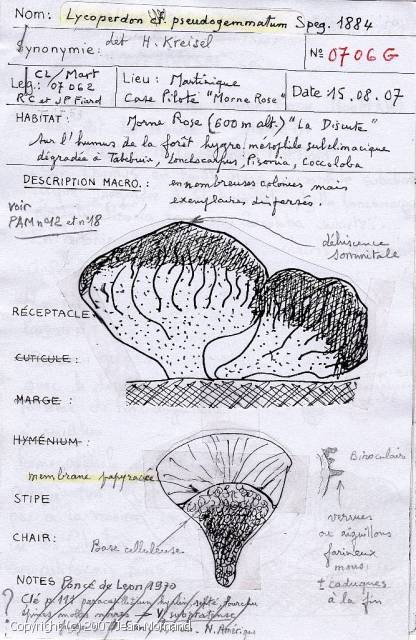 Nom: Lycoperdon cf pseudogemmatum Speg. 1884
Synonymie: det H. Kreisel
N° 0706G
Leg.: CL/Mart 07062
RC et JP Fiard
Lieu: Martinique
Case Pilote "Morne Rose"
Date 15.08.07
HABITAT: Morne Rose (600 m alt.) "La Discute"
sur l'humus de la forêt hygro mésophile subclimacique
dégradée à Tabebuia, Lonchocarpus, Pisonia, Coccoloba
DESCRIPTION MACRO.: en nombreuses colonies mais
exemplaires dispersés.
voir
PAM n°12 et n°18
déhiscence
sommitale
RÉCEPTACLE
CUTICULE:
MARGE:
HYMÉNIUM:
membrane papyracée
STIPE
CHAIR:
Base celluleuse
Binoculaire
verrues
ou aiguillons
farineux
mous
± caduques
à la fin
NOTES Ponce de Leon 1970
? Clé p 111
N. Amérique